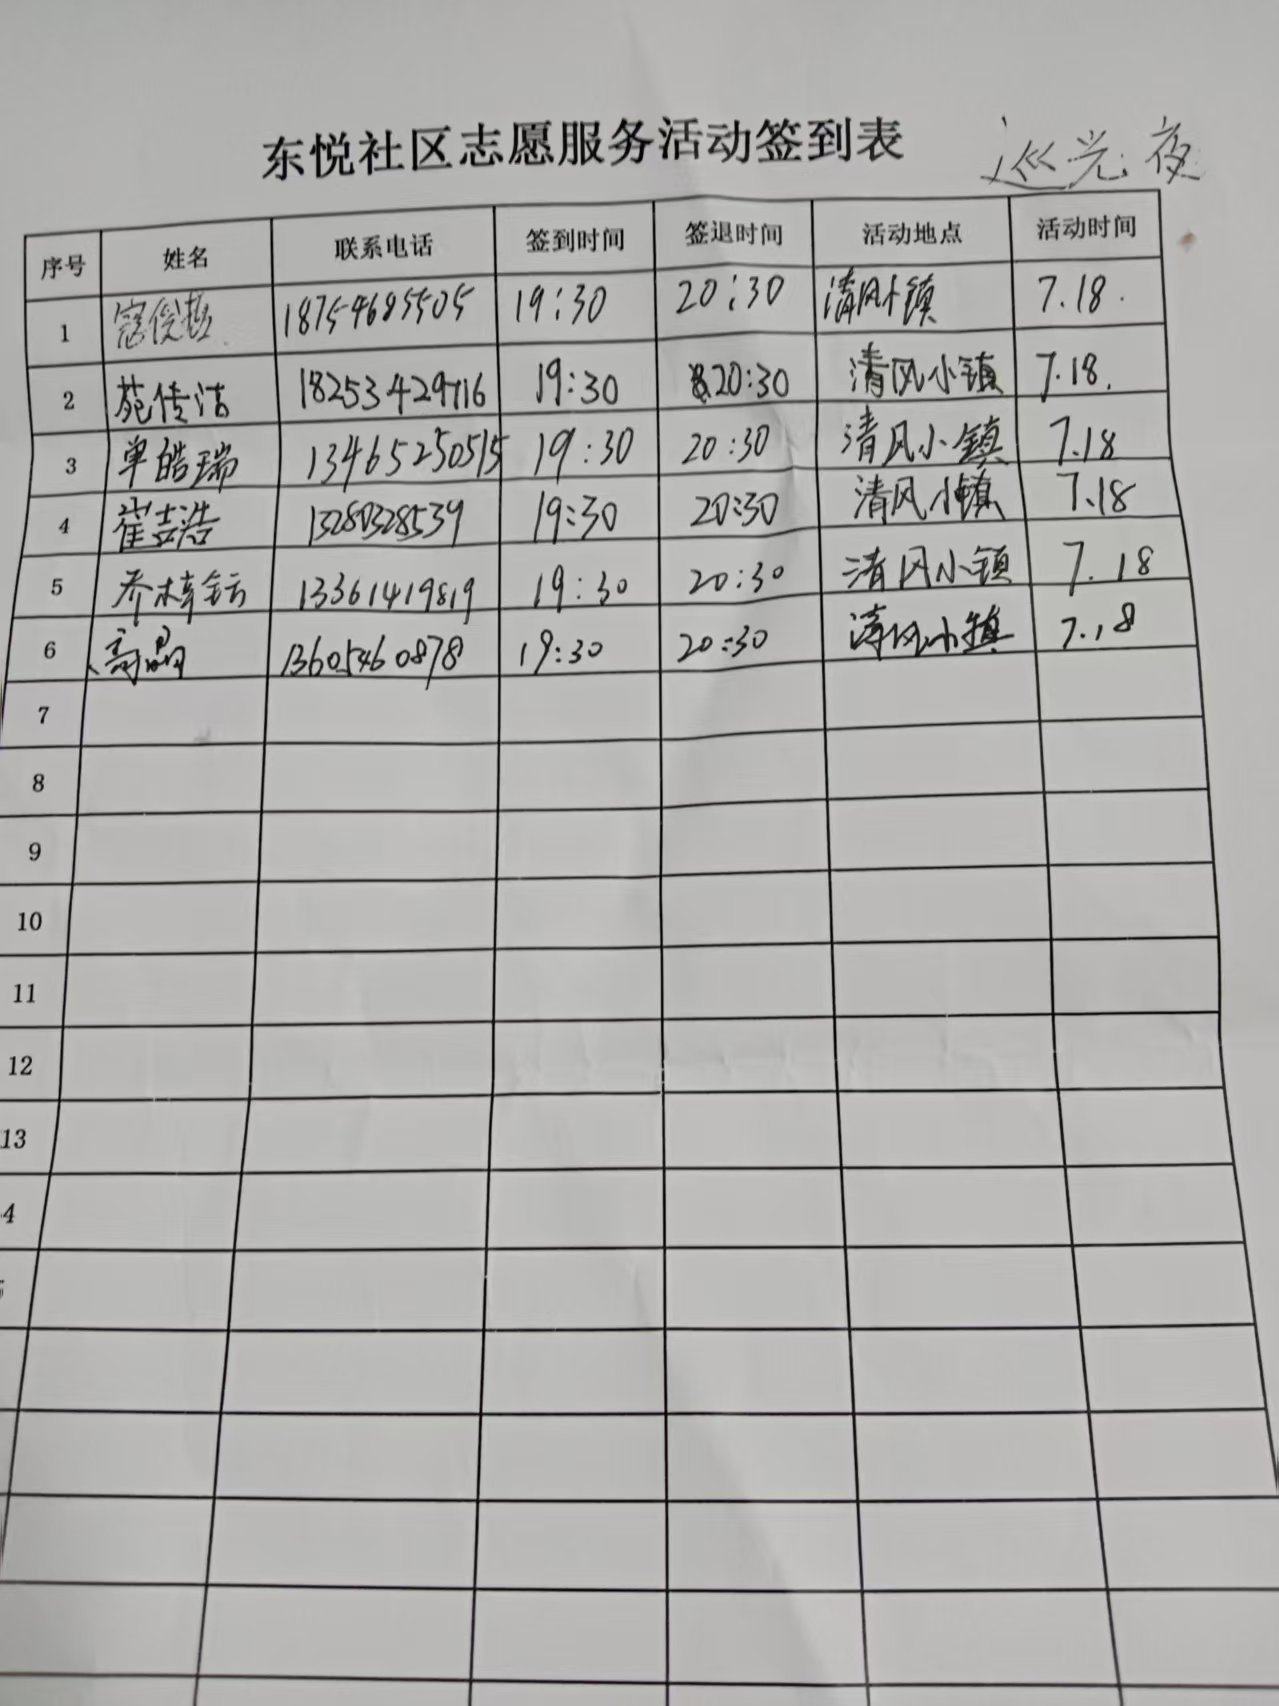 东悦社区志愿服务活动签到表 巡光夜
序号 姓名 联系电话 签到时间 签退时间 活动地点 活动时间
1 18754685505 19:30 20:30 清风小镇 7.18.
2 苑传洁 18253429716 19:30 20:30 清风小镇 7.18.
3 单皓瑞 13465250515 19:30 20:30 清风小镇 7.18
4 崔志浩 13280328539 19:30 20:30 清风小镇 7.18
5 乔梓钰 13361419819 19:30 20:30 清风小镇 7.18
6 高晶 13605460878 19:30 20:30 清风小镇 7.18
7
8
9
10
11
12
13
4